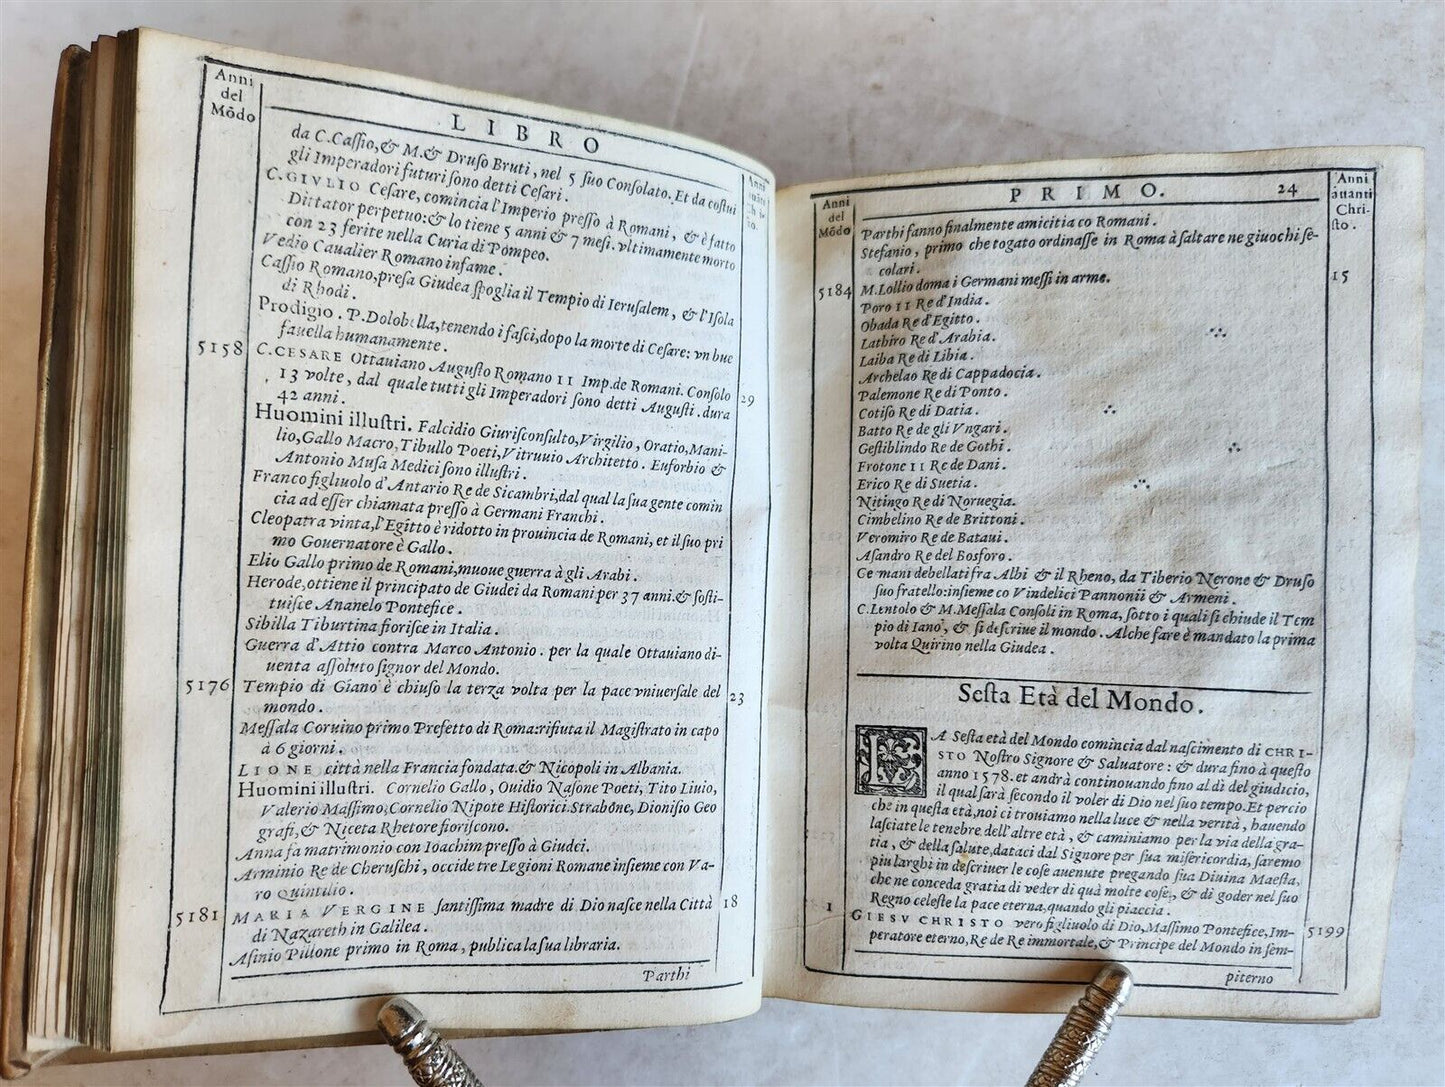 Anni
del
Mōdo
LIBRO
da C. Caſſio, & M. & Druſo Bruti, nel 5 ſuo Conſolato. Et da coſtui
gli Imperadori futuri ſono detti Ceſari.
C. GIVLIO Ceſare, comincia l'Imperio preſſo à Romani, & è fatto
Dittator perpetuo: & lo tiene 5 anni & 7 meſi. vltimamente morto
con 23 ferite nella Curia di Pompeo.
Vedio Caualier Romano infame.
Caſſio Romano, preſa Giudea ſpoglia il Tempio di Ieruſalem, & l'Iſola
di Rhodi.
Prodigio. P. Dolobella, tenendo i faſci, dopo la morte di Ceſare: vn bue
fauella humanamente.
5158 C. CESARE Ottauiano Auguſto Romano II Imp. de Romani. Conſolo
13 volte, dal quale tutti gli Imperadori ſono detti Auguſti. dura 29
42 anni.
Huomini illuſtri. Falcidio Giuriſconſulto, Virgilio, Oratio, Mani-
lio, Gallo Macro, Tibullo Poeti, Vitruuio Architetto. Euforbio &
Antonio Muſa Medici ſono illuſtri.
Franco figliuolo d'Antario Re de Sicambri, dal qual la ſua gente comin
cia ad eſſer chiamata preſſo à Germani Franchi.
Cleopatra vinta, l'Egitto è ridotto in prouincia de Romani, et il ſuo pri
mo Gouernatore è Gallo.
Elio Gallo primo de Romani, muoue guerra à gli Arabi.
Herode, ottiene il principato de Giudei da Romani per 37 anni. & ſoſti-
tuiſce Ananelo Pontefice.
Sibilla Tiburtina fioriſce in Italia.
Guerra d'Attio contra Marco Antonio. per la quale Ottauiano di-
uenta aſſoluto ſignor del Mondo.
5176 Tempio di Giano è chiuſo la terza volta per la pace vniuerſale del 23
mondo.
Meſſala Coruino primo Prefetto di Roma: rifiuta il Magiſtrato in capo
à 6 giorni.
LIONE città nella Francia fondata. & Nicopoli in Albania.
Huomini illuſtri. Cornelio Gallo, Ouidio Naſone Poeti, Tito Liuio,
Valerio Maſſimo, Cornelio Nipote Hiſtorici. Strabone, Dioniſio Geo
grafi, & Niceta Rhetore fioriſcono.
Anna fa matrimonio con Ioachim preſſo à Giudei.
Arminio Re de Cheruſchi, occide tre Legioni Romane inſieme con Va-
ro Quintilio.
5181 MARIA VERGINE ſantiſſima madre di Dio naſce nella Città 18
di Nazareth in Galilea.
Aſinio Pillone primo in Roma, publica la ſua libraria.
Parthi
Anni
del
Mōdo
PRIMO. 24
Anni
auanti
Chri-
ſto.
Parthi fanno finalmente amicitia co Romani.
Stefanio, primo che togato ordinaſſe in Roma à ſaltare ne giuochi ſe-
colari.
5184 M. Lollio doma i Germani meſſi in arme. 15
Poro II Re d'India.
Obada Re d'Egitto.
Lathiro Re d'Arabia.
Laiba Re di Libia.
Archelao Re di Cappadocia.
Palemone Re di Ponto.
Cotiſo Re di Datia.
Batto Re de gli Vngari.
Geſtiblindo Re de Gothi.
Frotone II Re de Dani.
Erico Re di Suetia.
Nitingo Re di Noruegia.
Cimbelino Re de Brittoni.
Veromiro Re de Bataui.
Aſandro Re del Boſforo.
Ge mani debellati fra Albi & il Rheno, da Tiberio Nerone & Druſo
ſuo fratello: inſieme co Vindelici Pannonii & Armeni.
C. Lentolo & M. Meſſala Conſoli in Roma, ſotto i quali ſi chiude il Tem
pio di Iano, & ſi deſcriue il mondo. Al che fare è mandato la prima
volta Quirino nella Giudea.
Seſta Età del Mondo.
LA Seſta età del Mondo comincia dal naſcimento di CHRI-
STO Noſtro Signore & Saluatore: & dura fino à queſto
anno 1578. et andrà continouando fino al dì del giudicio,
il qual ſarà ſecondo il voler di Dio nel ſuo tempo. Et percio
che in queſta età, noi ci trouiamo nella luce & nella verità, hauendo
laſciate le tenebre dell'altre età, & caminiamo per la via della gra-
tia, & della ſalute, dataci dal Signore per ſua miſericordia, ſaremo
piu larghi in deſcriuer le coſe auenute pregando ſua Diuina Maeſta,
che ne conceda gratia di veder di quà molte coſe, & di goder nel ſuo
Regno celeſte la pace eterna, quando gli piaccia.
1 GIESV CHRISTO vero figliuolo di Dio, Maſſimo Pontefice, Im- 5199
peratore eterno, Re de Re immortale, & Principe del Mondo in ſem-
piterno